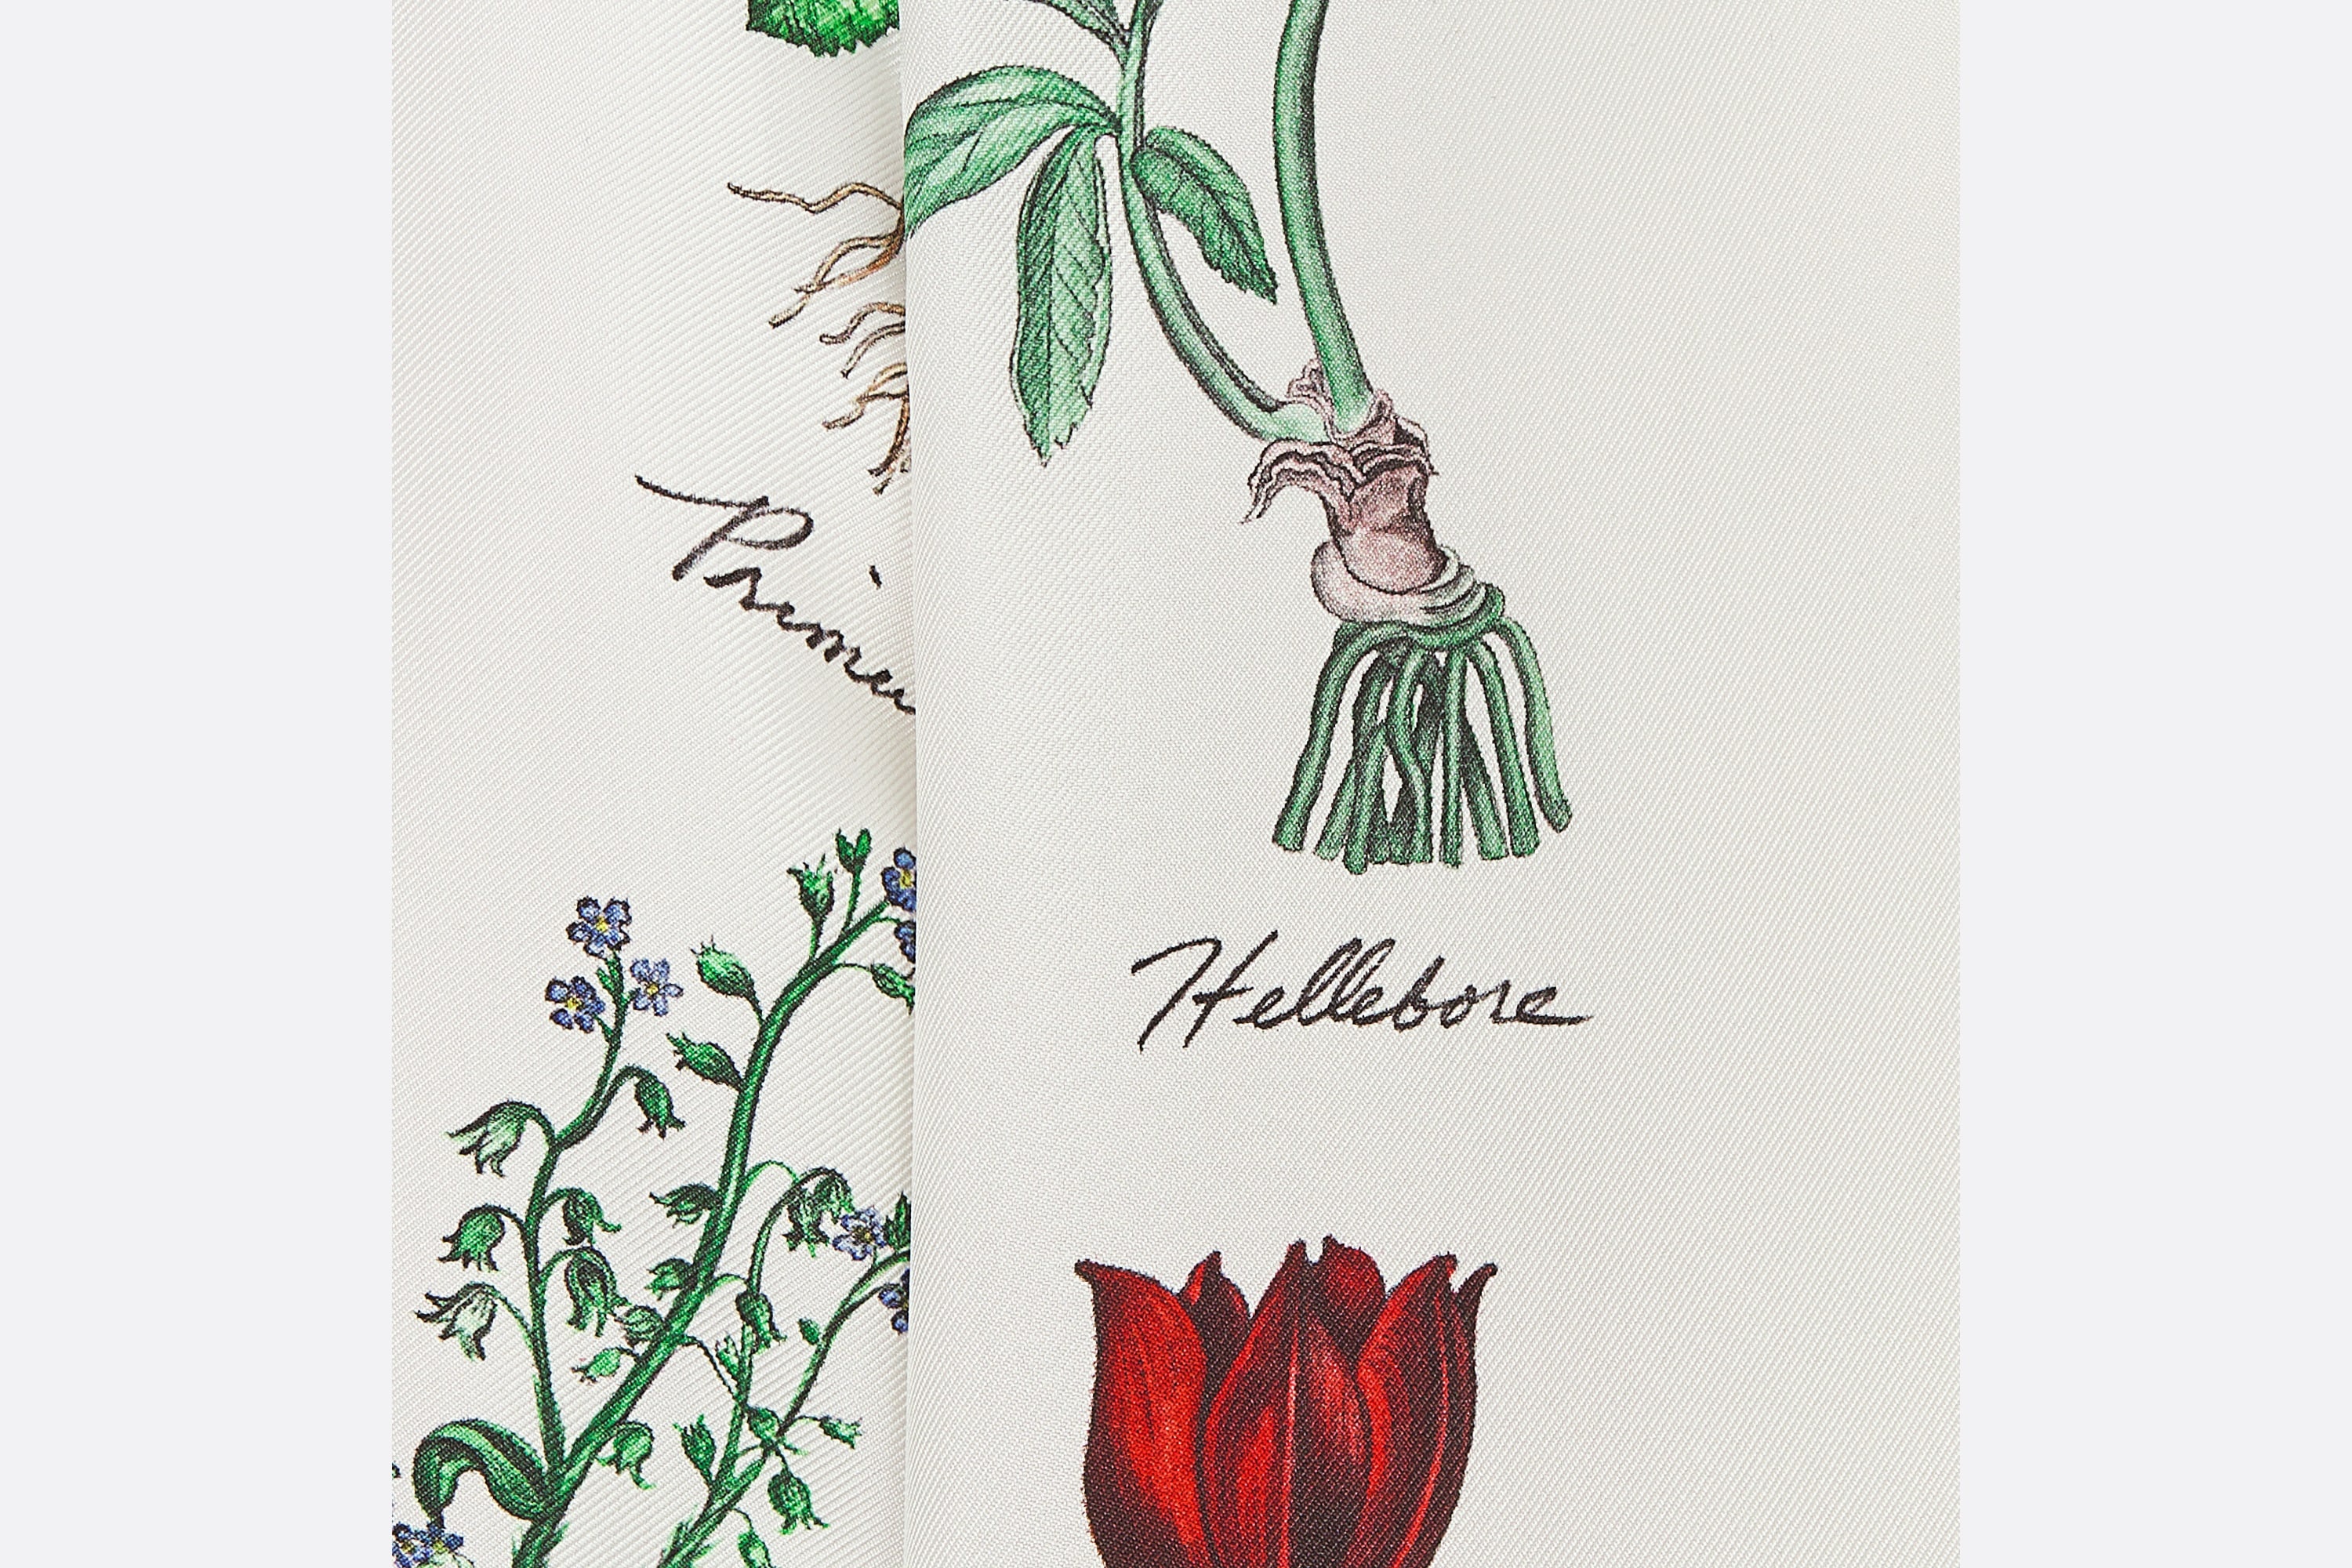 Primu
Hellebore